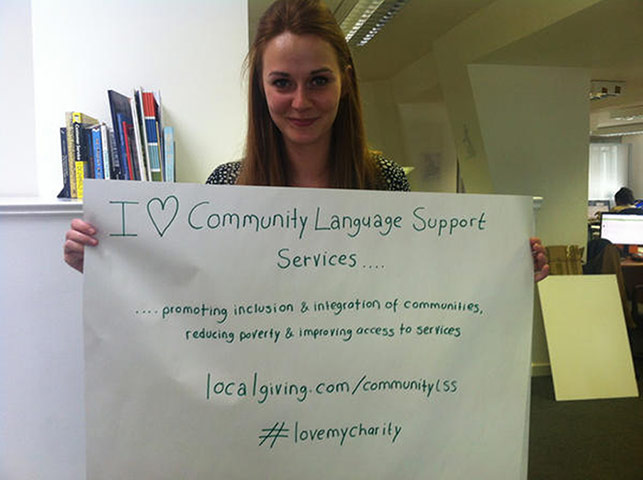 I ♡ Community Language Support
Services ....
.... promoting inclusion & integration of communities,
reducing poverty & improving access to services
localgiving.com/communitylss
#lovemycharity